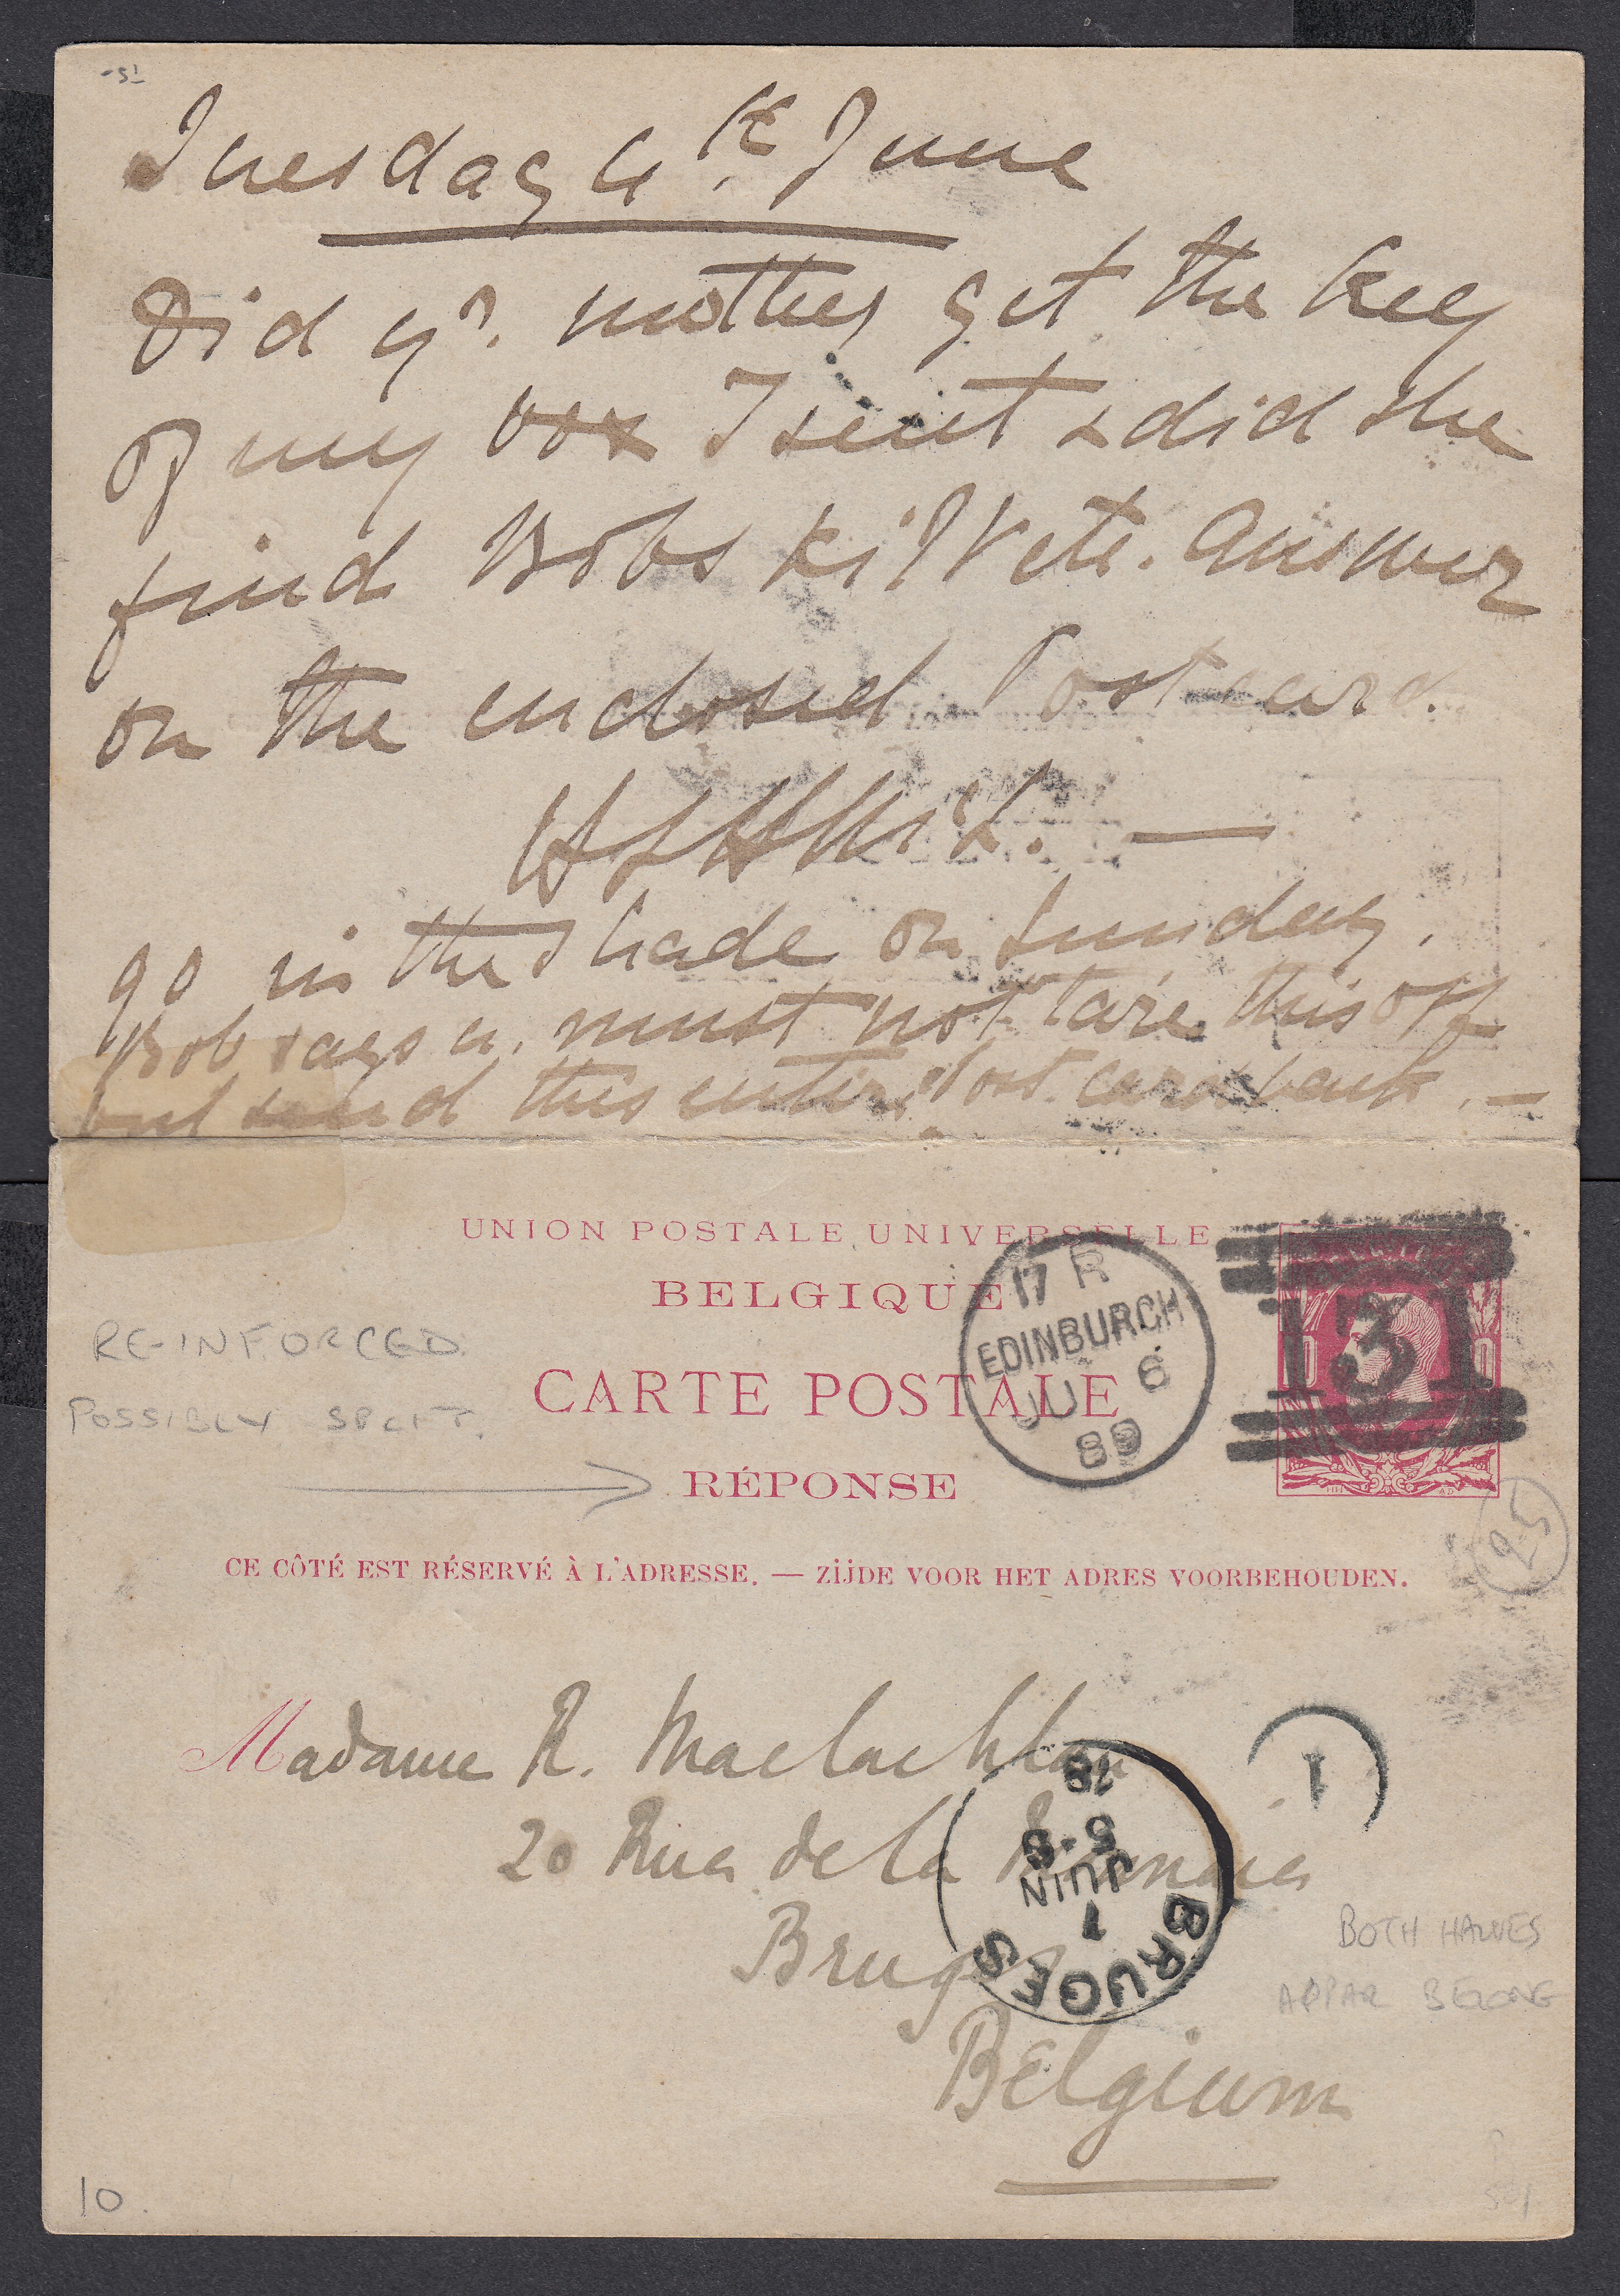 Tuesday 4th. June
Did yr. mother get the key
of my box I sent & did she
find Bobs kilt etc. Answer
on the enclosed Post card.
go in the shade on Sunday.
Bob says u. must not tare this off
but send this entire Post. card back. —
UNION POSTALE UNIVERSELLE
BELGIQUE
CARTE POSTALE
RÉPONSE
17 R
EDINBURGH
JU 6
89
131
RE-INFORCED
POSSIBLY SPLIT.
25
CE CÔTÉ EST RÉSERVÉ À L'ADRESSE. — ZIJDE VOOR HET ADRES VOORBEHOUDEN.
Madame R. Maclachlan
20 Rue de la
Bruges
Belgium
BRUGES
1
JUIN
18
1
BOTH HALVES
APPAR BELONG
10.